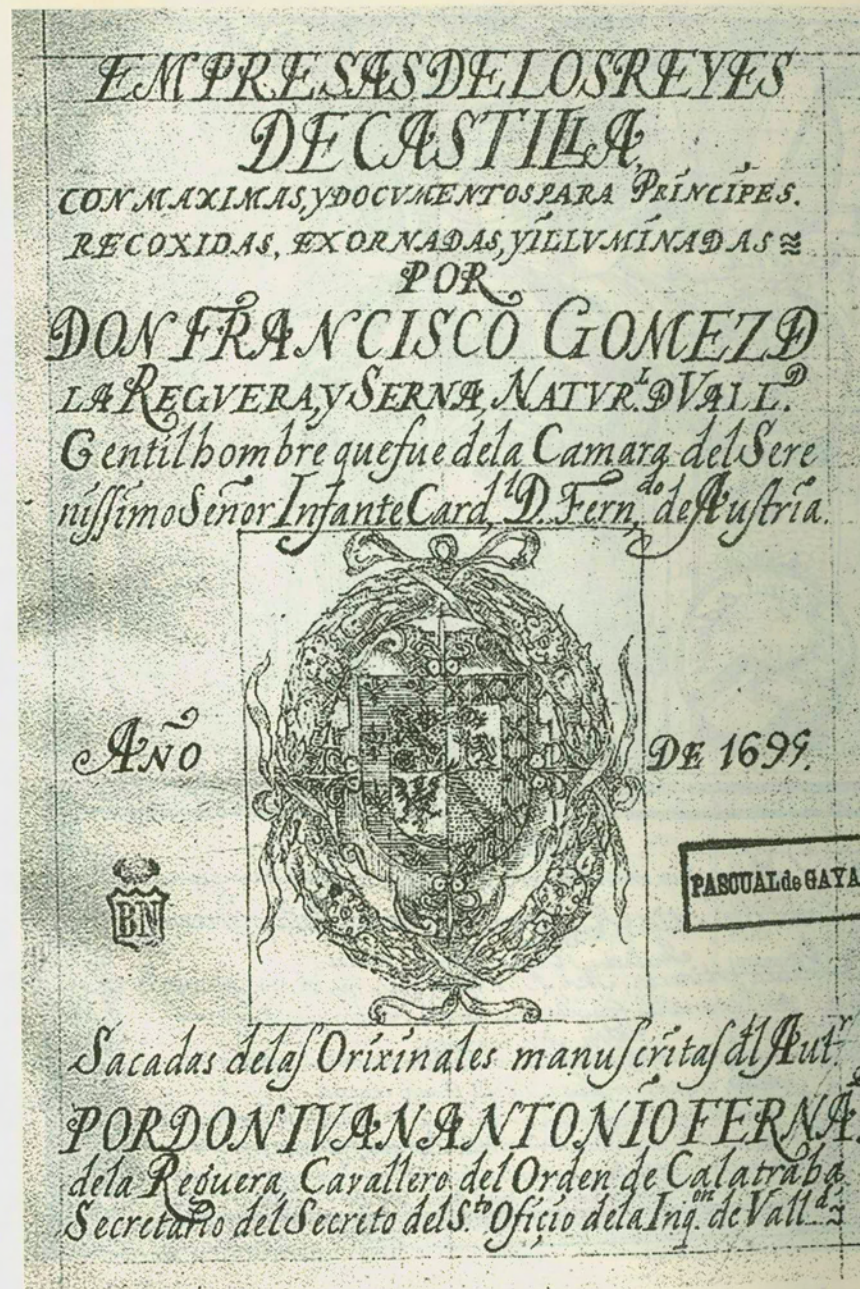 EMPRESAS DE LOS REYES
DE CASTILLA,
CON MAXIMAS, Y DOCVMENTOS PARA PRÍNCÍPES.
RECOXIDAS, EXORNADAS, Y ÍLLVMÍNADAS
POR
DON FRANCISCO GOMEZ D
LA REGVERA, Y SERNA, NATVR.L D VALL.D
Gentilhombre que fue dela Camara del Sere
nissimo Señor Infante Card.l D. Fern.do de Austria.
AÑO DE 1699.
BN
PASCUAL de GAYA
Sacadas delas Orixinales manuscritas dl Aut.r
POR DON IVAN ANTONÍO FERNA
dela Reguera, Cavallero del Orden de Calatraba
Secretario del Secreto del S.to Oficio dela Inq.on de Vall.d